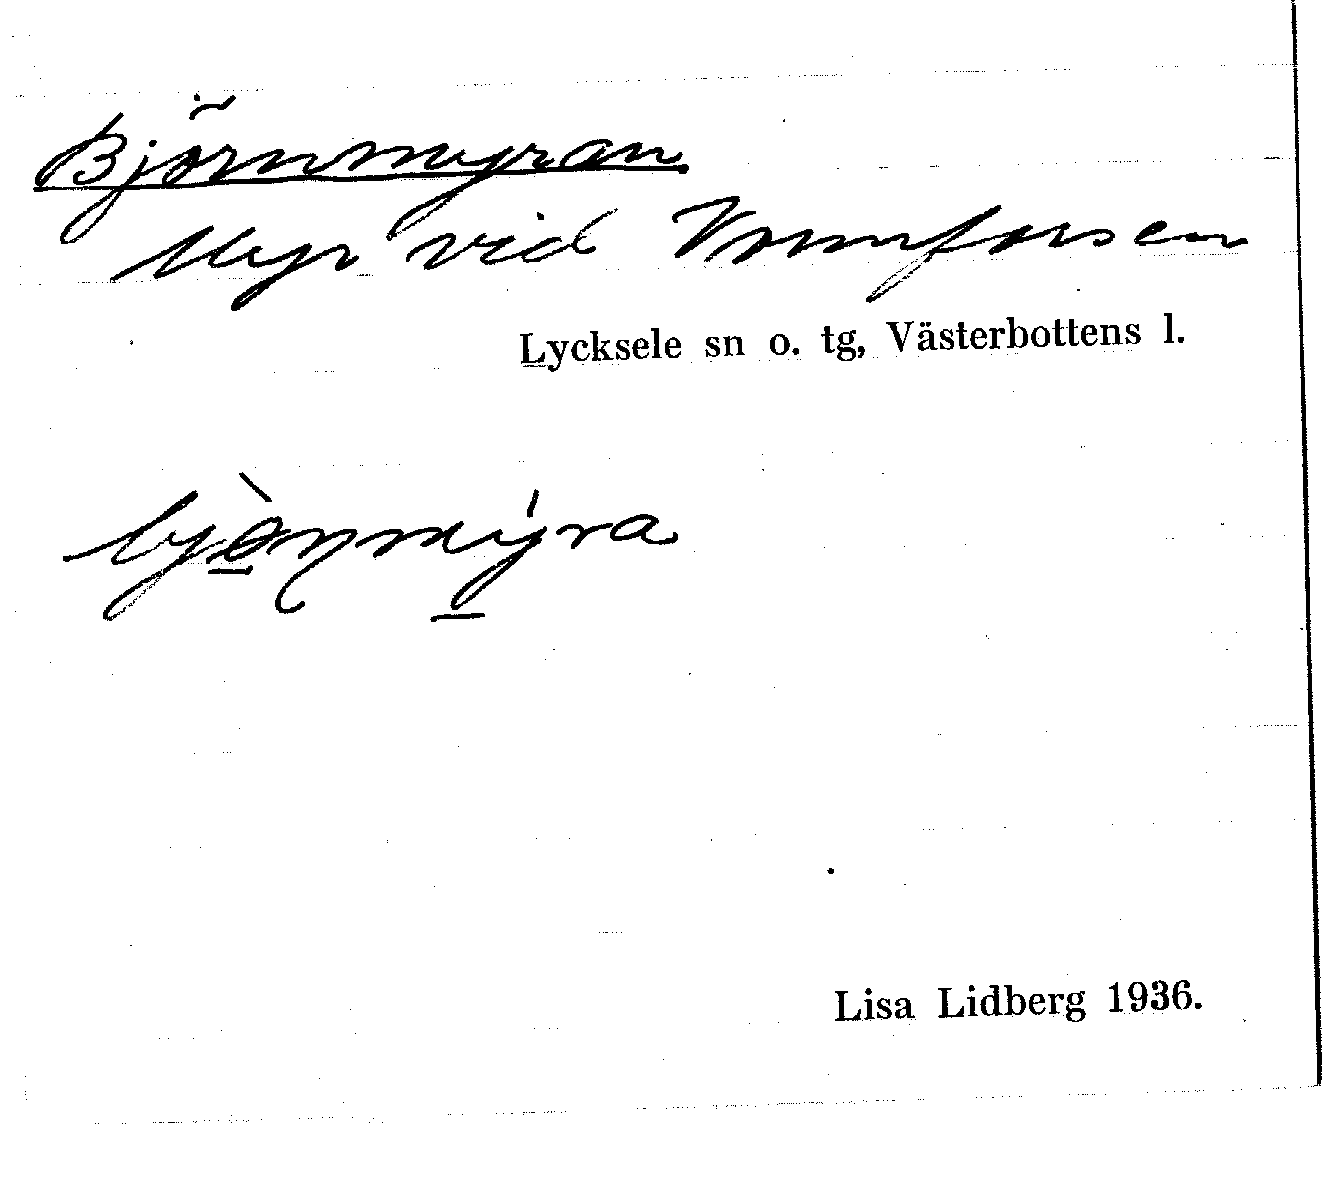 Björnmyran
Myr vid Vormforsen
Lycksele sn o. tg, Västerbottens l.
bjə̀ṇmýra
Lisa Lidberg 1936.